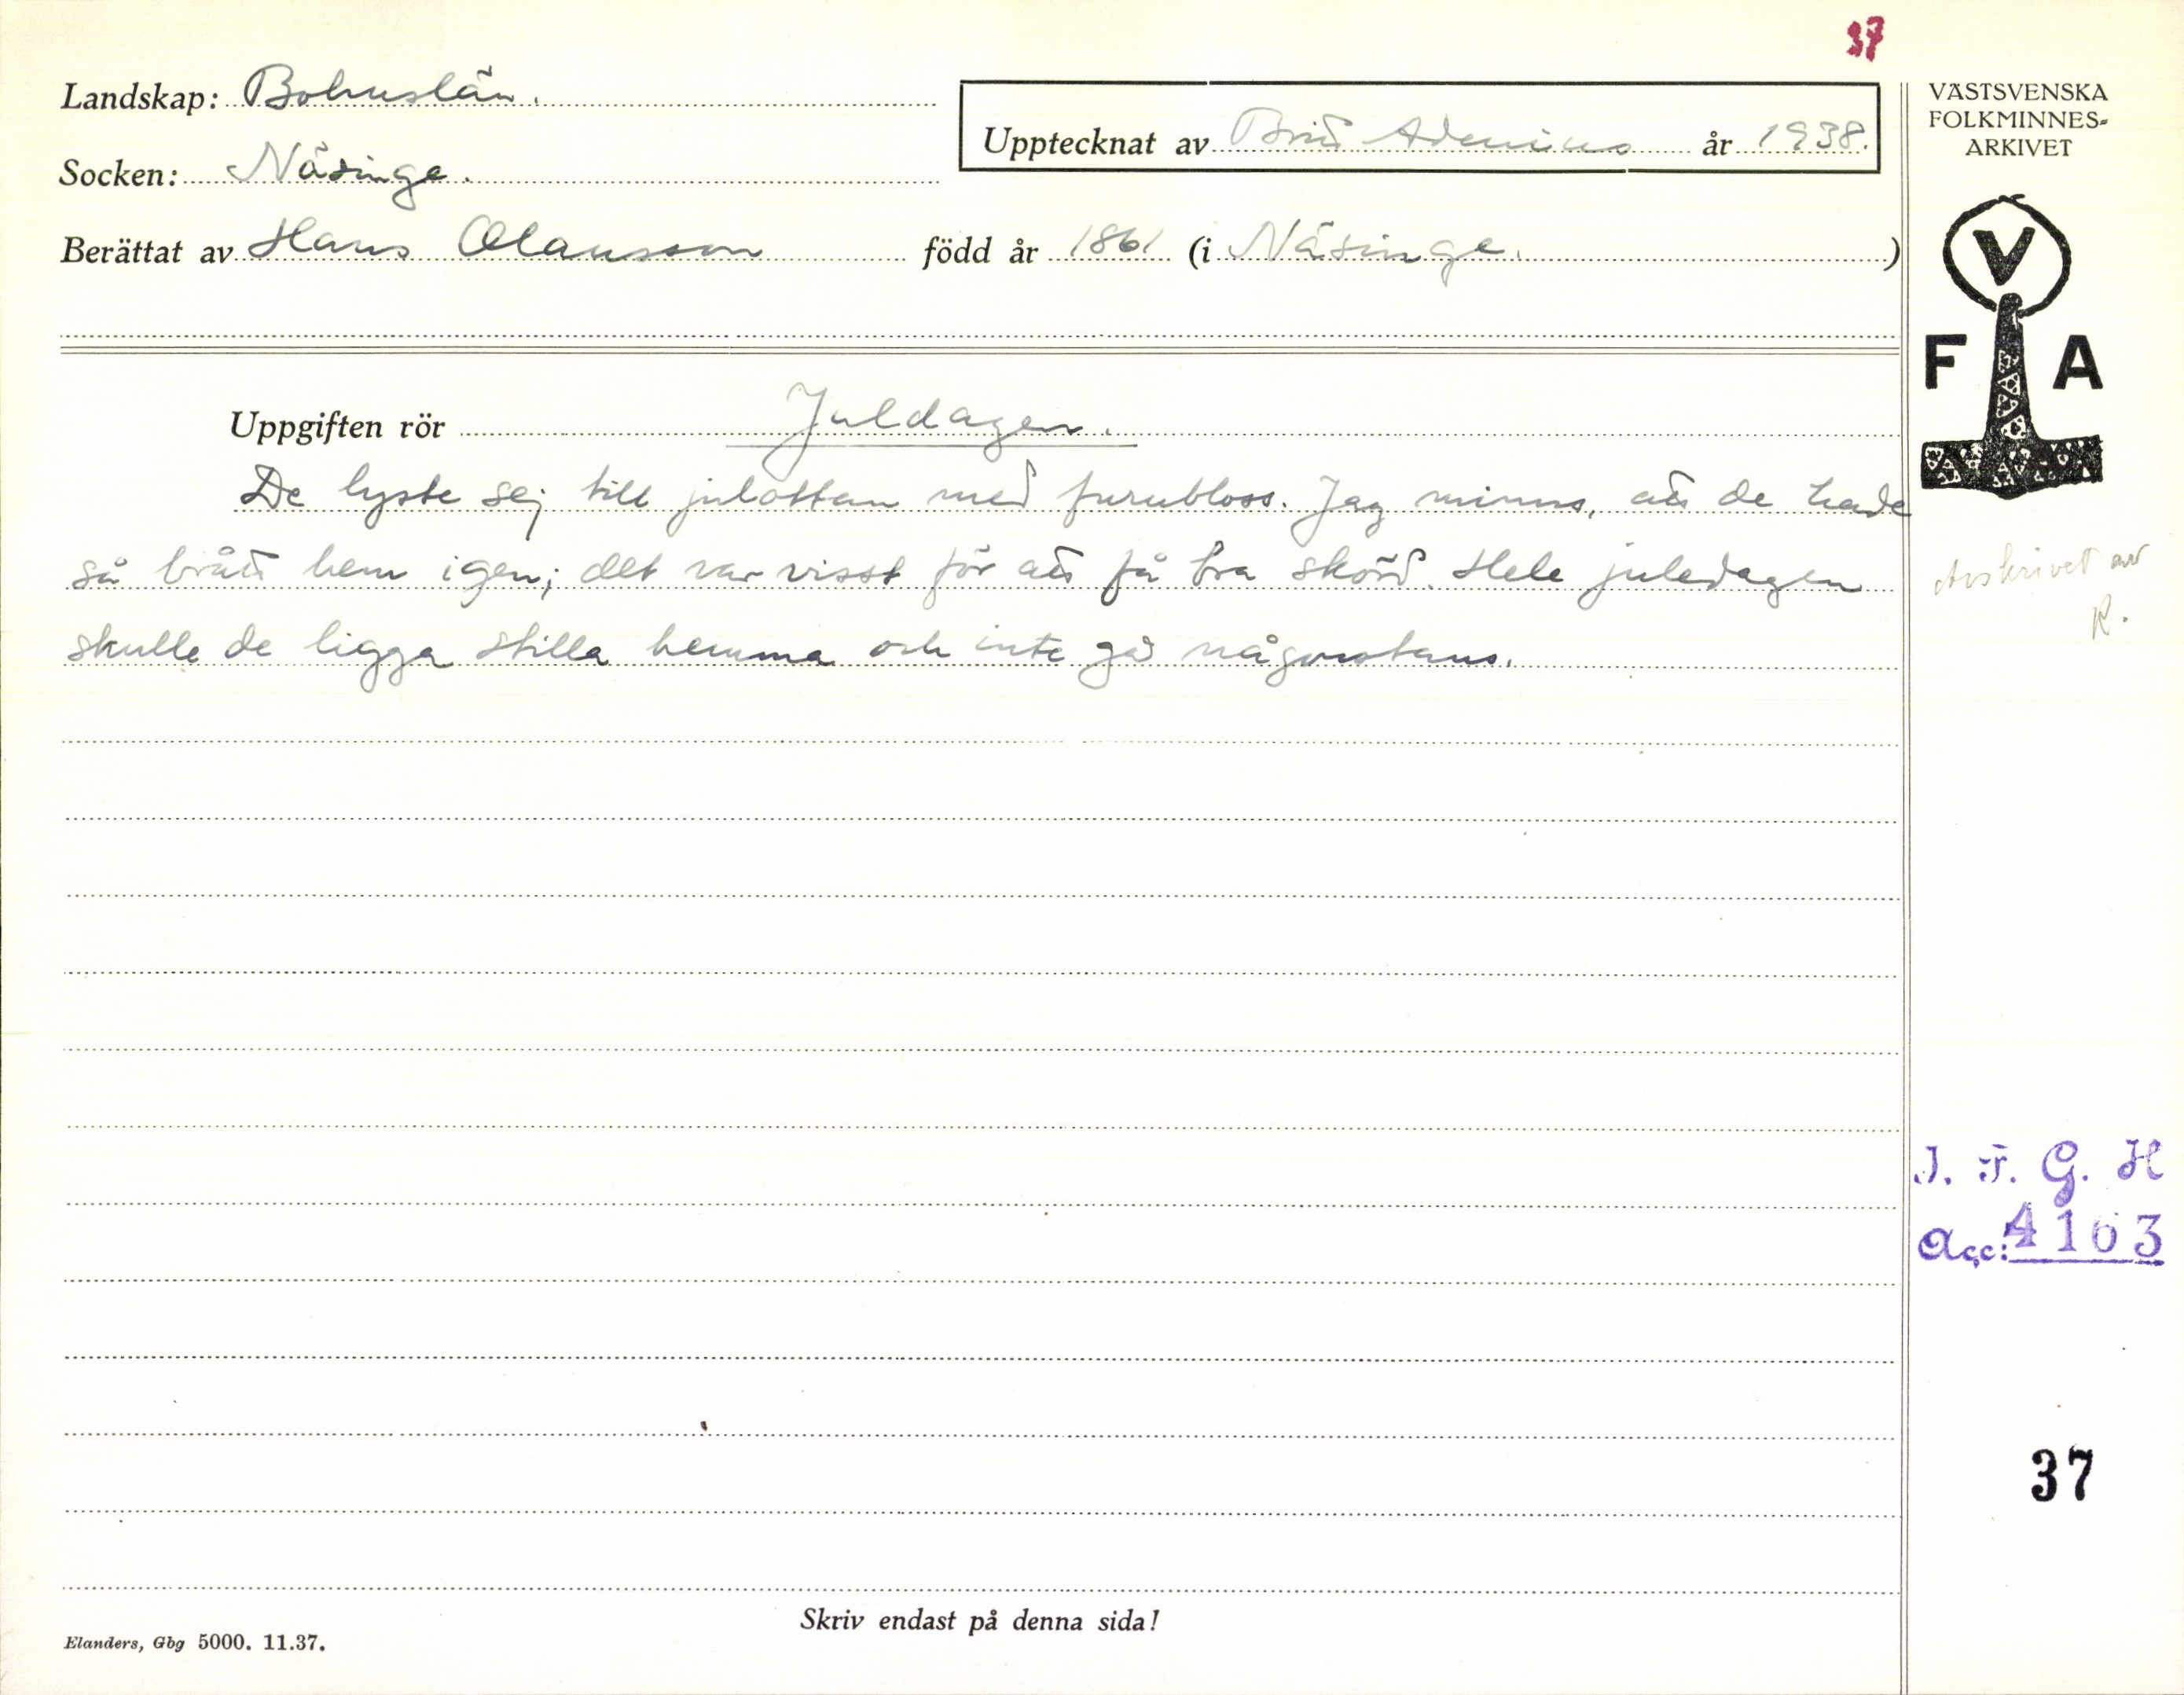 37
Landskap: Bohuslän.
Upptecknat av Britt Adenius år 1938.
Socken: Näsinge.
Berättat av Hans Olausson född år 1861 (i Näsinge.)
VÄSTSVENSKA
FOLKMINNES-
ARKIVET
V
F A
Uppgiften rör Juldagen.
De lyste sej till julottan med furubloss. Jag minns, att de hade
så brått hem igen; det var visst för att få bra skörd. Hele juledagen
skulle de ligga stilla hemma och inte gå någonstans.
Avskrivet av
R.
I. F. G. H
Acc: 4163
37
Skriv endast på denna sida!
Elanders, Gbg 5000. 11.37.